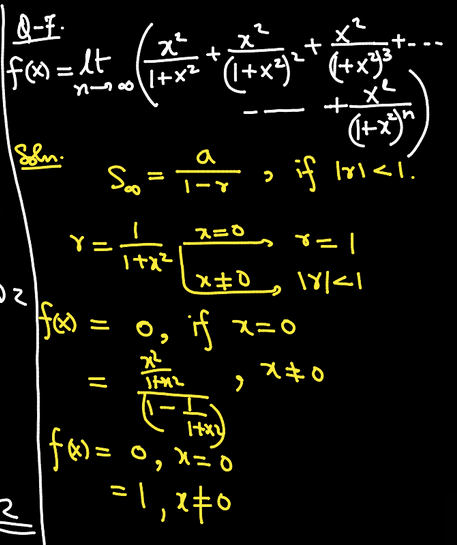 Q-7.
f(x) = lt n→∞ ( x²/(1+x²) + x²/(1+x²)² + x²/(1+x²)³ + ---
---- + x²/(1+x²)ⁿ )
Soln.
S∞ = a/(1-r) , if |r| < 1.
r = 1/(1+x²) x=0 → r = 1
x≠0 → |r|<1
2
f(x) = 0, if x=0
= (x²/(1+x²))/(1 - 1/(1+x²)) , x≠0
f(x) = 0, x=0
= 1, x≠0
2